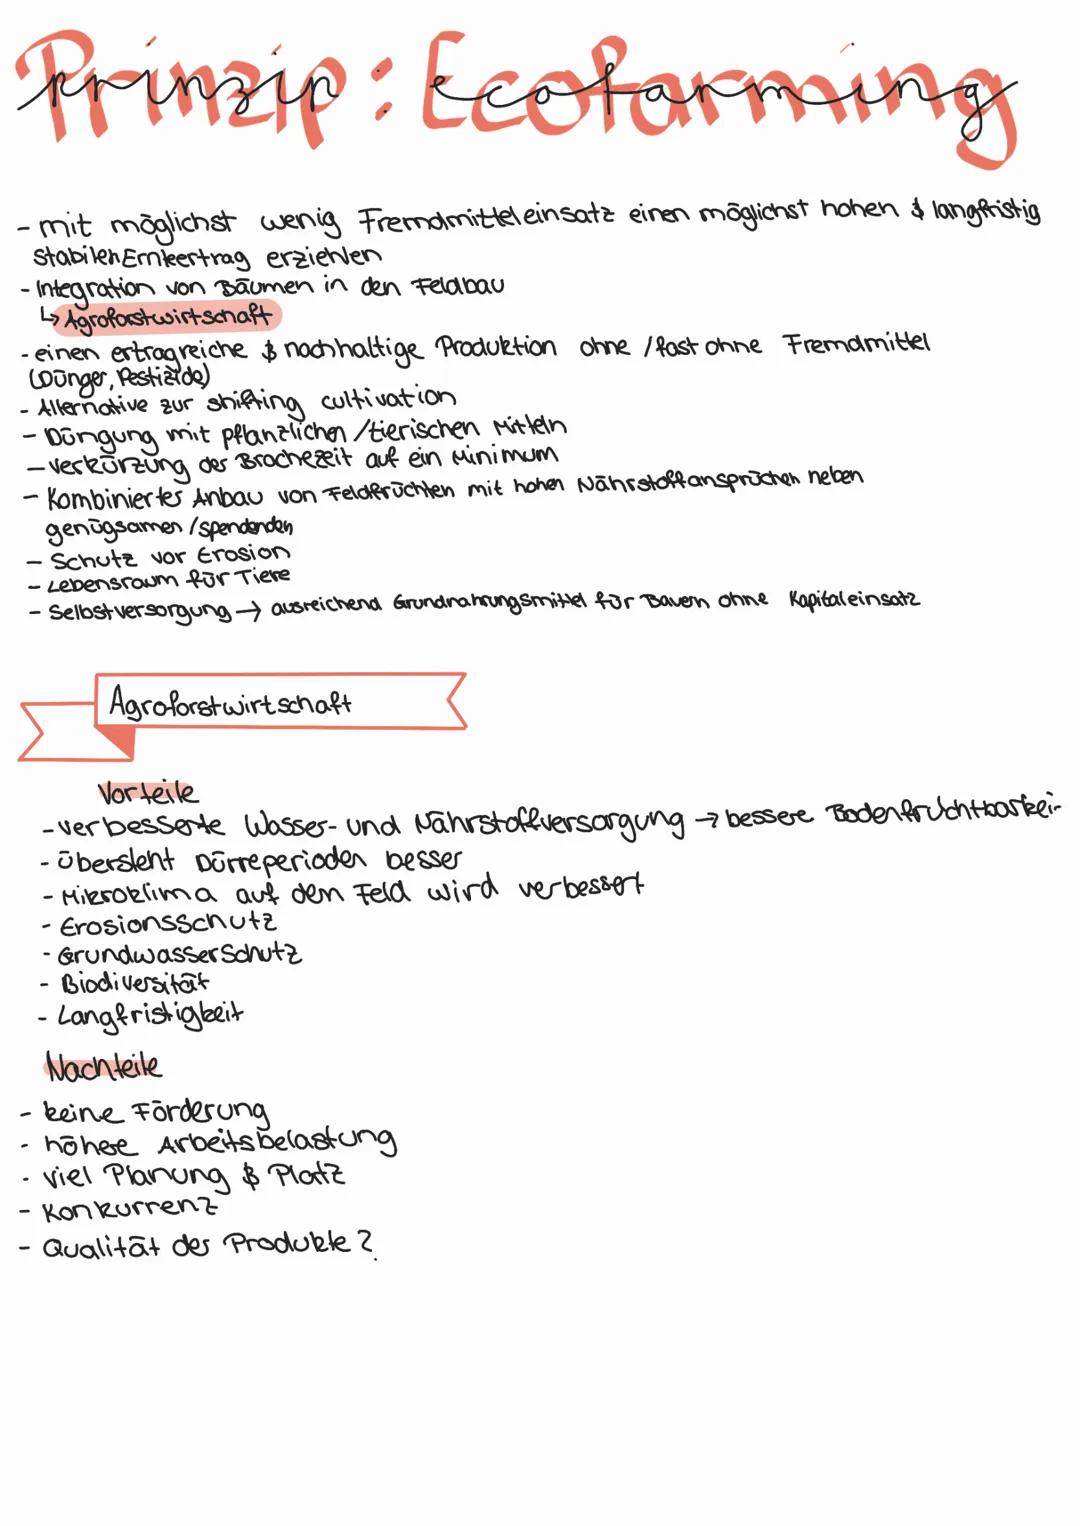 Prinzip: Ecofarming
- mit möglichst wenig Fremdmitteleinsatz einen möglichst hohen & langfristig
stabilen Ernteertrag erziehlen
- Integration von Bäumen in den Feldbau
↳ Agroforstwirtschaft
- einen ertragreiche & nachhaltige Produktion ohne / fast ohne Fremdmittel
(Dünger, Pestizide)
- Alternative zur shifting cultivation
- Düngung mit pflanzlichen / tierischen Mitteln
- Verkürzung der Brachezeit auf ein Minimum
- Kombiniertes Anbau von Feldfrüchten mit hohen Nährstoffansprüchen neben
genügsamen / spendenden
- Schutz vor Erosion
- Lebensraum für Tiere
- Selbstversorgung → ausreichend Grundnahrungsmittel für Bauern ohne Kapitaleinsatz
Agroforstwirtschaft
Vorteile
- verbesserte Wasser- und Nährstoffversorgung → bessere Bodenfruchtbarkei-
- übersteht Dürreperioden besser
- Mikroklima auf dem Feld wird verbessert
- Erosionsschutz
- Grundwasserschutz
- Biodiversität
- Langfristigkeit
Nachteile
- keine Förderung
- höhere Arbeitsbelastung
- viel Planung & Platz
- Konkurrenz
- Qualität der Produkte?